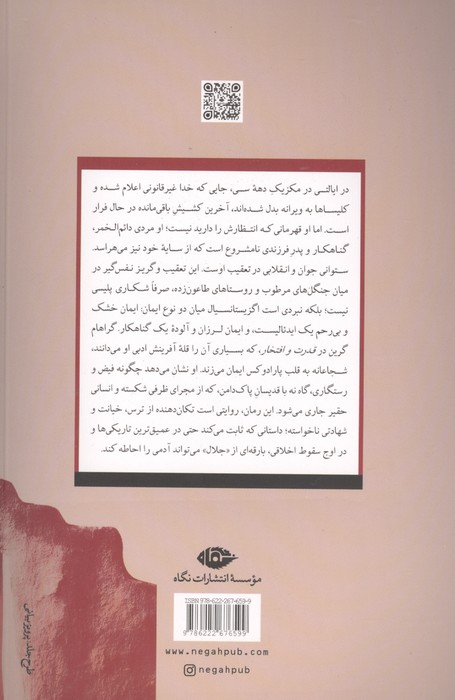 در ایالتی در مکزیکِ دههٔ سی، جایی که خدا غیرقانونی اعلام شده و
کلیساها به ویرانه بدل شده‌اند، آخرین کشیشِ باقی‌مانده در حال فرار
است. اما او قهرمانی که انتظارش را دارید نیست؛ او مردی دائم‌الخمر،
گناهکار و پدرِ فرزندی نامشروع است که از سایهٔ خود نیز می‌هراسد.
ستوانی جوان و انقلابی در تعقیب اوست. این تعقیب وگریز نفس‌گیر در
میان جنگل‌های مرطوب و روستاهای طاعون‌زده، صرفاً شکاری پلیسی
نیست؛ بلکه نبردی است اگزیستانسیال میان دو نوع ایمان: ایمان خشک
و بی‌رحم یک ایدئالیست، و ایمان لرزان و آلودهٔ یک گناهکار. گراهام
گرین در قدرت و افتخار، که بسیاری آن را قلهٔ آفرینش ادبی او می‌دانند،
شجاعانه به قلب پارادوکس ایمان می‌زند. او نشان می‌دهد چگونه فیض و
رستگاری، گاه نه با قدیسان پاک‌دامن، که از مجرای ظرفی شکسته و انسانی
حقیر جاری می‌شود. این رمان، روایتی است تکان‌دهنده از ترس، خیانت و
شهادتی ناخواسته؛ داستانی که ثابت می‌کند حتی در عمیق‌ترین تاریکی‌ها و
در اوج سقوط اخلاقی، بارقه‌ای از «جلال» می‌تواند آدمی را احاطه کند.
مؤسسهٔ انتشارات نگاه
ISBN 978-622-267-659-9
9 786222 676599
www.negahpub.com
negahpub
طرح جلد: پرویز بیانی